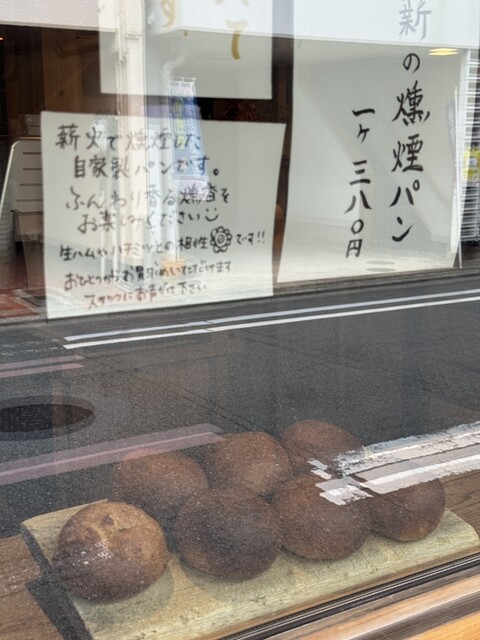 新
の燻煙パン
一ヶ 三八〇円
薪火で燻煙した
自家製パンです。
ふんわり香る燻香を
お楽しみください
生ハムやハチミツとの相性 です!!
おひとつからお買い求めいただけます
スタッフにお声がけ下さい